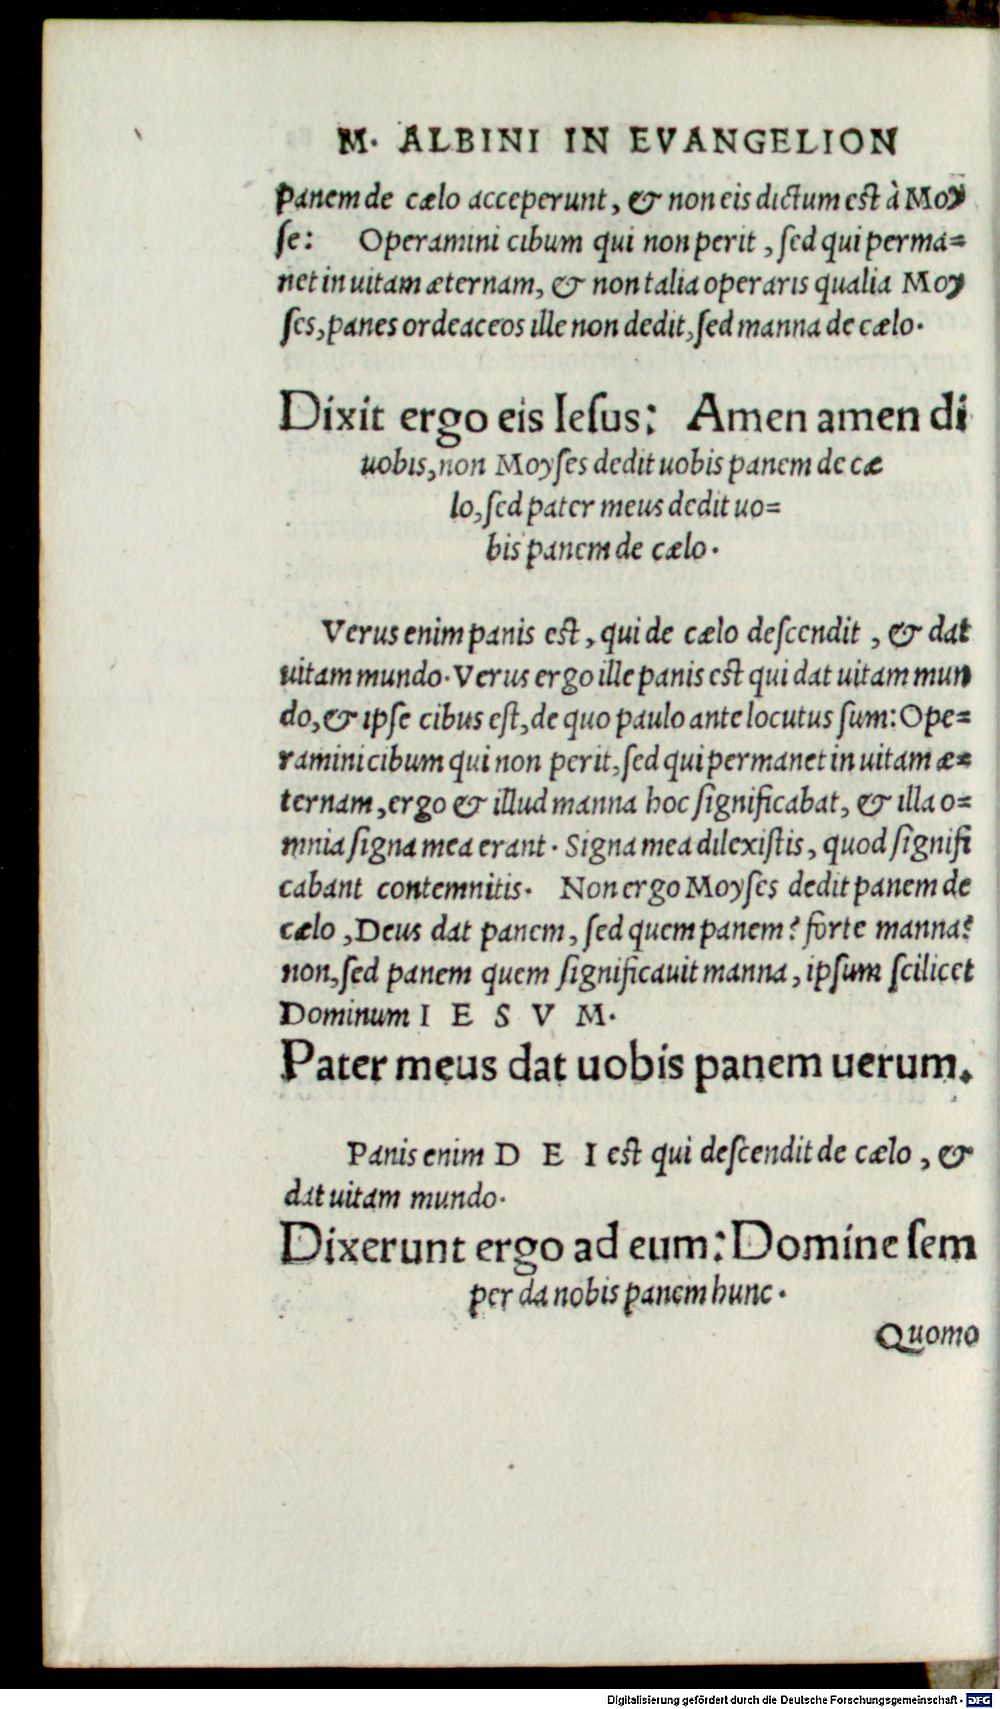 M. ALBINI IN EVANGELION
panem de cælo acceperunt, & non eis dictum est à Moy
ſe: Operamini cibum qui non perit, ſed qui perma=
net in uitam æternam, & non talia operaris qualia Moy
ſes, panes ordeaceos ille non dedit, ſed manna de cælo.
Dixit ergo eis Ieſus: Amen amen di
uobis, non Moyſes dedit uobis panem de cæ
lo, ſed pater meus dedit uo=
bis panem de cælo.
Verus enim panis est, qui de cælo deſcendit, & dat
uitam mundo. Verus ergo ille panis est qui dat uitam mun
do, & ipſe cibus eſt, de quo paulo ante locutus ſum: Ope=
ramini cibum qui non perit, ſed qui permanet in uitam æ=
ternam, ergo & illud manna hoc ſignificabat, & illa o=
mnia ſigna mea erant. Signa mea dilexiſtis, quod ſignifi
cabant contemnitis. Non ergo Moyſes dedit panem de
cælo, Deus dat panem, ſed quem panem? forte manna?
non, ſed panem quem ſignificauit manna, ipſum ſcilicet
Dominum I E S V M.
Pater meus dat uobis panem uerum.
Panis enim D E I est qui deſcendit de cælo, &
dat uitam mundo.
Dixerunt ergo ad eum: Domine ſem
per da nobis panem hunc.
Quomo
Digitalisierung gefördert durch die Deutsche Forschungsgemeinschaft - DFG